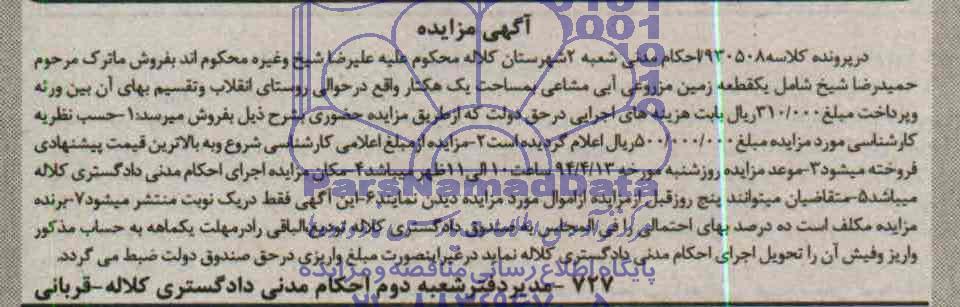 آگهی مزایده
درپرونده کلاسه ۹۳۰۵۰۸ احکام مدنی شعبه ۲شهرستان کلاله محکوم علیه علیرضا شیخ وغیره محکوم اند بفروش ماترک مرحوم
حمیدرضا شیخ شامل یکقطعه زمین مزروعی آبی مشاعی بمساحت یک هکتار واقع درحوالی روستای انقلاب وتقسیم بهای آن بین ورثه
وپرداخت مبلغ ۳۱۰/۰۰۰ریال بابت هزینه های اجرایی درحق دولت که ازطریق مزایده حضوری بشرح ذیل بفروش میرسد:۱-حسب نظریه
کارشناسی مورد مزایده مبلغ ۵۰۰/۰۰۰/۰۰۰ریال اعلام گردیده است۲-مزایده ازمبلغ اعلامی کارشناسی شروع وبه بالاترین قیمت پیشنهادی
فروخته میشود۳-موعد مزایده روزشنبه مورخه ۹۴/۴/۱۳ ساعت ۱۰ الی ۱۱ ظهر میباشد۴-مکان مزایده اجرای احکام مدنی دادگستری کلاله
میباشد۵-متقاضیان میتوانند پنج روزقبل ازمزایده ازاموال مورد مزایده دیدن نمایند۶-این آگهی فقط دریک نوبت منتشر میشود۷-برنده
مزایده مکلف است ده درصد بهای احتمالی را فی المجلس به صندوق دادگستری کلاله تودیع والباقی رادرمهلت یکماهه به حساب مذکور
واریز وفیش آن را تحویل اجرای احکام مدنی دادگستری کلاله نماید درغیراینصورت مبلغ واریزی درحق صندوق دولت ضبط می گردد.
۷۲۷ -مدیردفترشعبه دوم احکام مدنی دادگستری کلاله-قربانی
ParsNamadData
پایگاه اطلاع رسانی مناقصه ومزایده